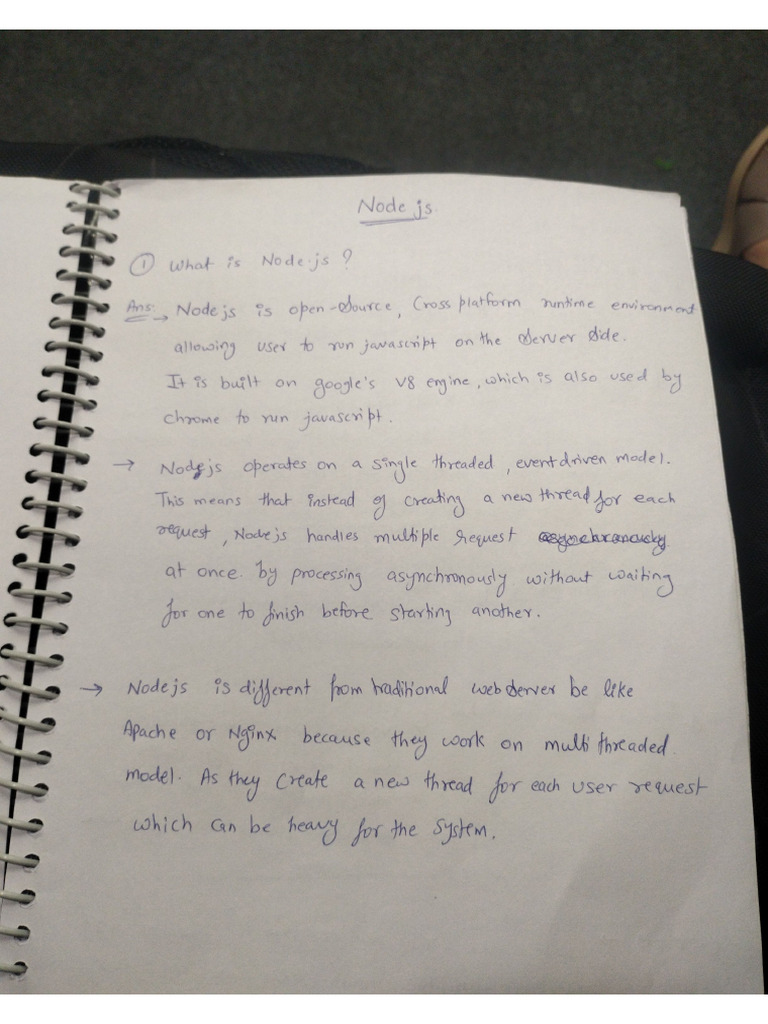 Node js.
① What is Node.js ?
Ans: → Node js is open-source, Cross platform runtime environment
allowing user to run javascript on the server side.
It is built on google's V8 engine, which is also used by
chrome to run javascript.
→ Nodejs operates on a single threaded, event driven model.
This means that instead of creating a new thread for each
request, Node js handles multiple request asynchronously
at once. by processing asynchronously without waiting
for one to finish before starting another.
→ Node js is different from traditional web server be like
Apache or Nginx because they work on multi threaded
model. As they create a new thread for each user request
which can be heavy for the system.